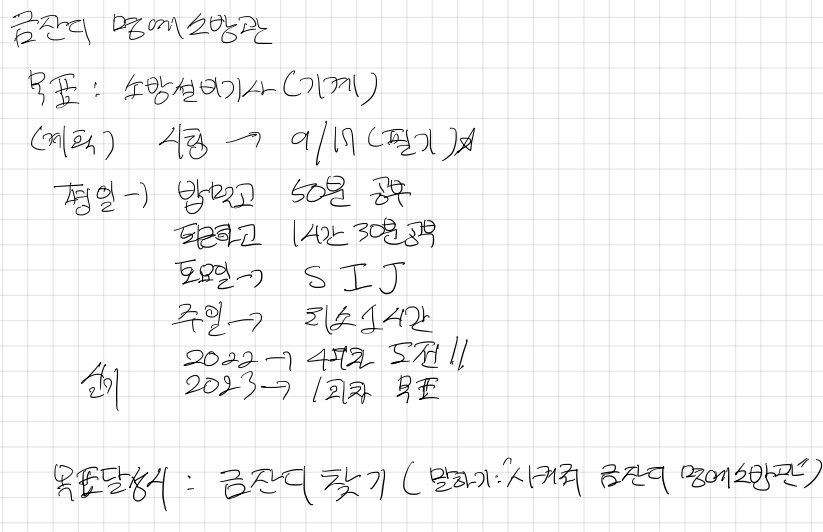 금잔디 명예소방관
목표 : 소방설비기사 (기계)
(계획) 시험 → 9/17 (필기)☆
평일→) 밥먹고 50분 공부
퇴근하고 1시간 30분 공부
토요일→ S I J
주일→ 최소 1시간
2022 → 4회차 도전!!
실기 2023 → 1회차 목표
목표달성시 : 금잔디 찾기 (말하기: "시켜줘 금잔디 명예소방관")